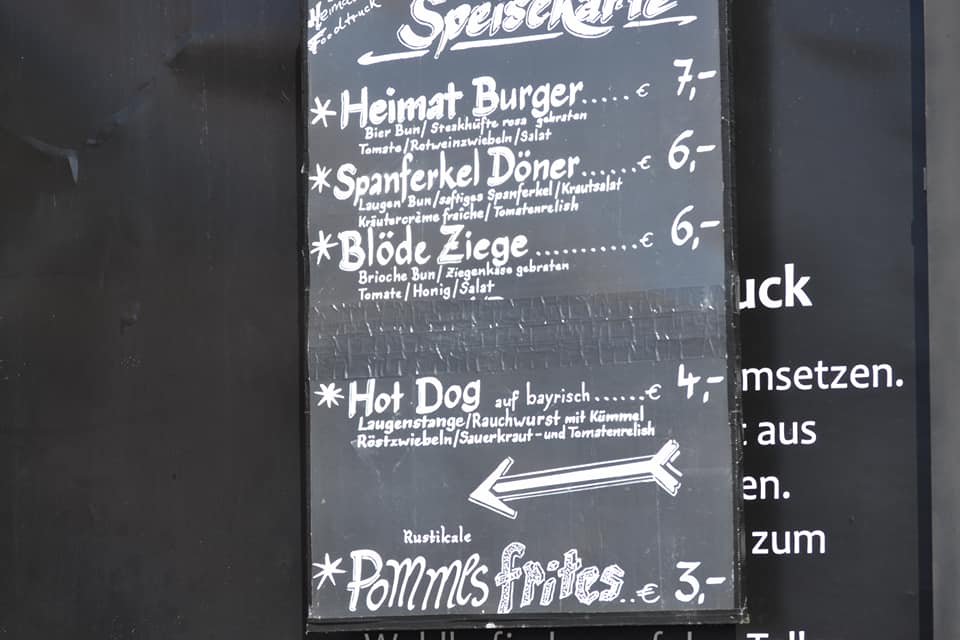 Heimat
Foodtruck
Speisekarte
* Heimat Burger.....€ 7,-
Bier Bun/Steakhüfte rosa gebraten
Tomate/Rotweinzwiebeln/Salat
* Spanferkel Döner......€ 6,-
Laugen Bun/saftiges Spanferkel/Krautsalat
Kräutercrème fraîche/Tomatenrelish
* Blöde Ziege..........€ 6,-
Brioche Bun/Ziegenkäse gebraten
Tomate/Honig/Salat
* Hot Dog auf bayrisch......€ 4,-
Laugenstange/Rauchwurst mit Kümmel
Röstzwiebeln/Sauerkraut-und Tomatenrelish
Rustikale
* Pommes frites..€ 3,-
uck
msetzen.
aus
en.
zum